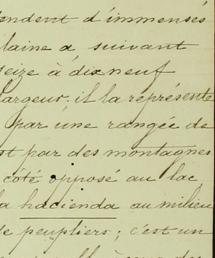 tendent d'immenses
plaine a suivant
seize à dix neuf
largeur; il la représente
par une rangée de
st par des montagnes
côté opposé au lac
la hacienda au milieu
de peupliers; c'est un